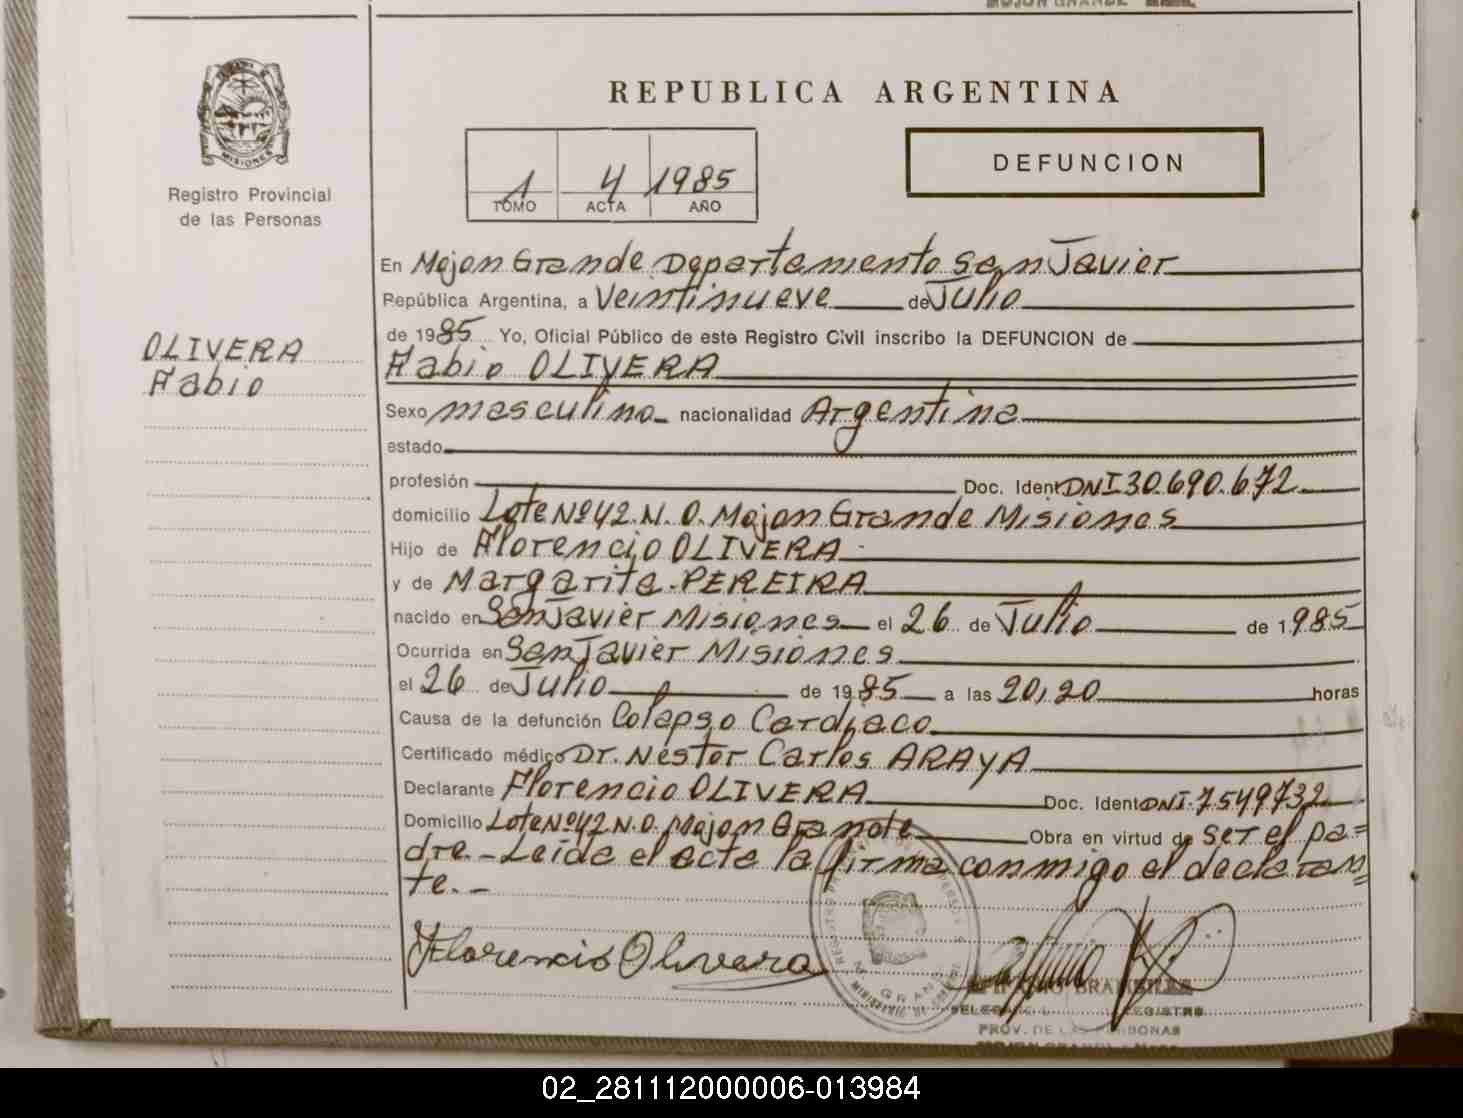 MOJON GRANDE
REPUBLICA ARGENTINA
MISIONES
Registro Provincial
de las Personas
1 4 1985
TOMO ACTA AÑO
DEFUNCION
OLIVERA
Fabio
En Mojon Grande Departamento San Javier
República Argentina, a Veintinueve de Julio
de 1985 Yo, Oficial Público de este Registro Civil inscribo la DEFUNCION de
Fabio OLIVERA
Sexo masculino nacionalidad Argentina
estado
profesión Doc. Ident DNI 30.690.672
domicilio Lote Nº 42 N. O. Mojon Grande Misiones
Hijo de Florencio OLIVERA
y de Margarita PEREIRA
nacido en San Javier Misiones el 26 de Julio de 1985
Ocurrida en San Javier Misiones
el 26 de Julio de 1985 a las 20,20 horas
Causa de la defunción Colapso Cardiaco
Certificado médico Dr. Néstor Carlos ARAYA
Declarante Florencio OLIVERA Doc. Ident DNI. 7549732
Domicilio Lote Nº 42 N. O. Mojon Grande Obra en virtud de ser el pa=
dre.- Leída el acta la firma conmigo el declaran=
te.-
Florencio Olivera
PROV. DE LAS PERSONAS
MOJON GRANDE
02_281112000006-013984